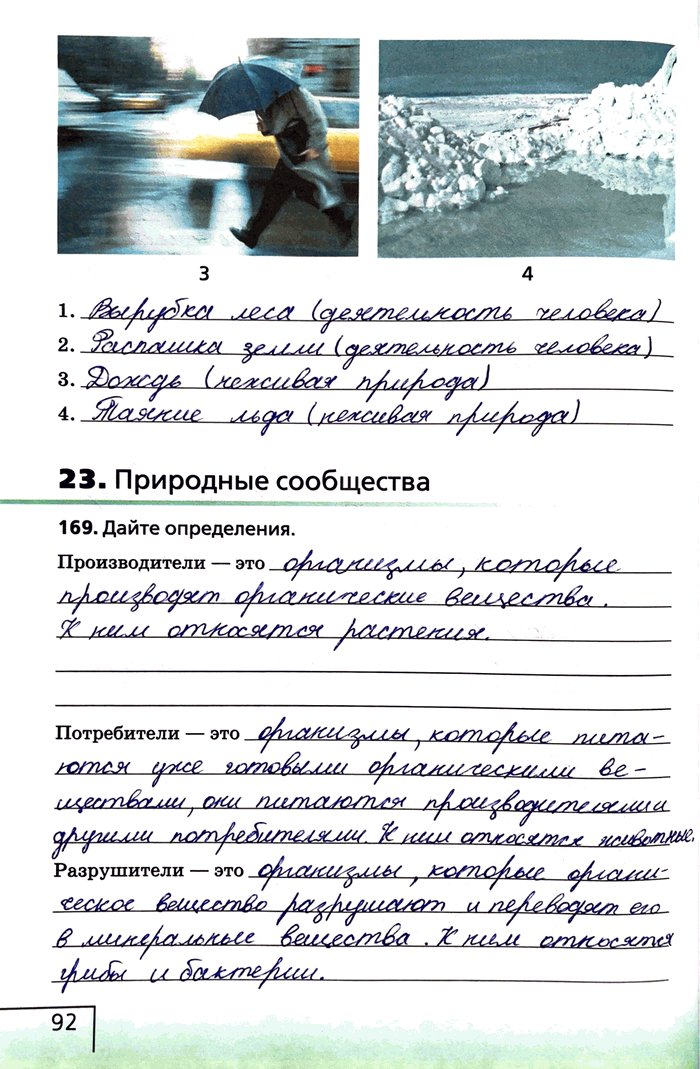 3
4
1. Вырубка леса (деятельность человека)
2. Распашка земли (деятельность человека)
3. Дождь (неживая природа)
4. Таяние льда (неживая природа)
23. Природные сообщества
169. Дайте определения.
Производители — это организмы, которые
производят органические вещества.
К ним относятся растения.
Потребители — это организмы, которые пита-
ются уже готовыми органическими ве-
ществами, они питаются производителями и
другими потребителями. К ним относятся животные.
Разрушители — это организмы, которые органи-
ческое вещество разрушают и переводят его
в минеральные вещества. К ним относятся
грибы и бактерии.
92